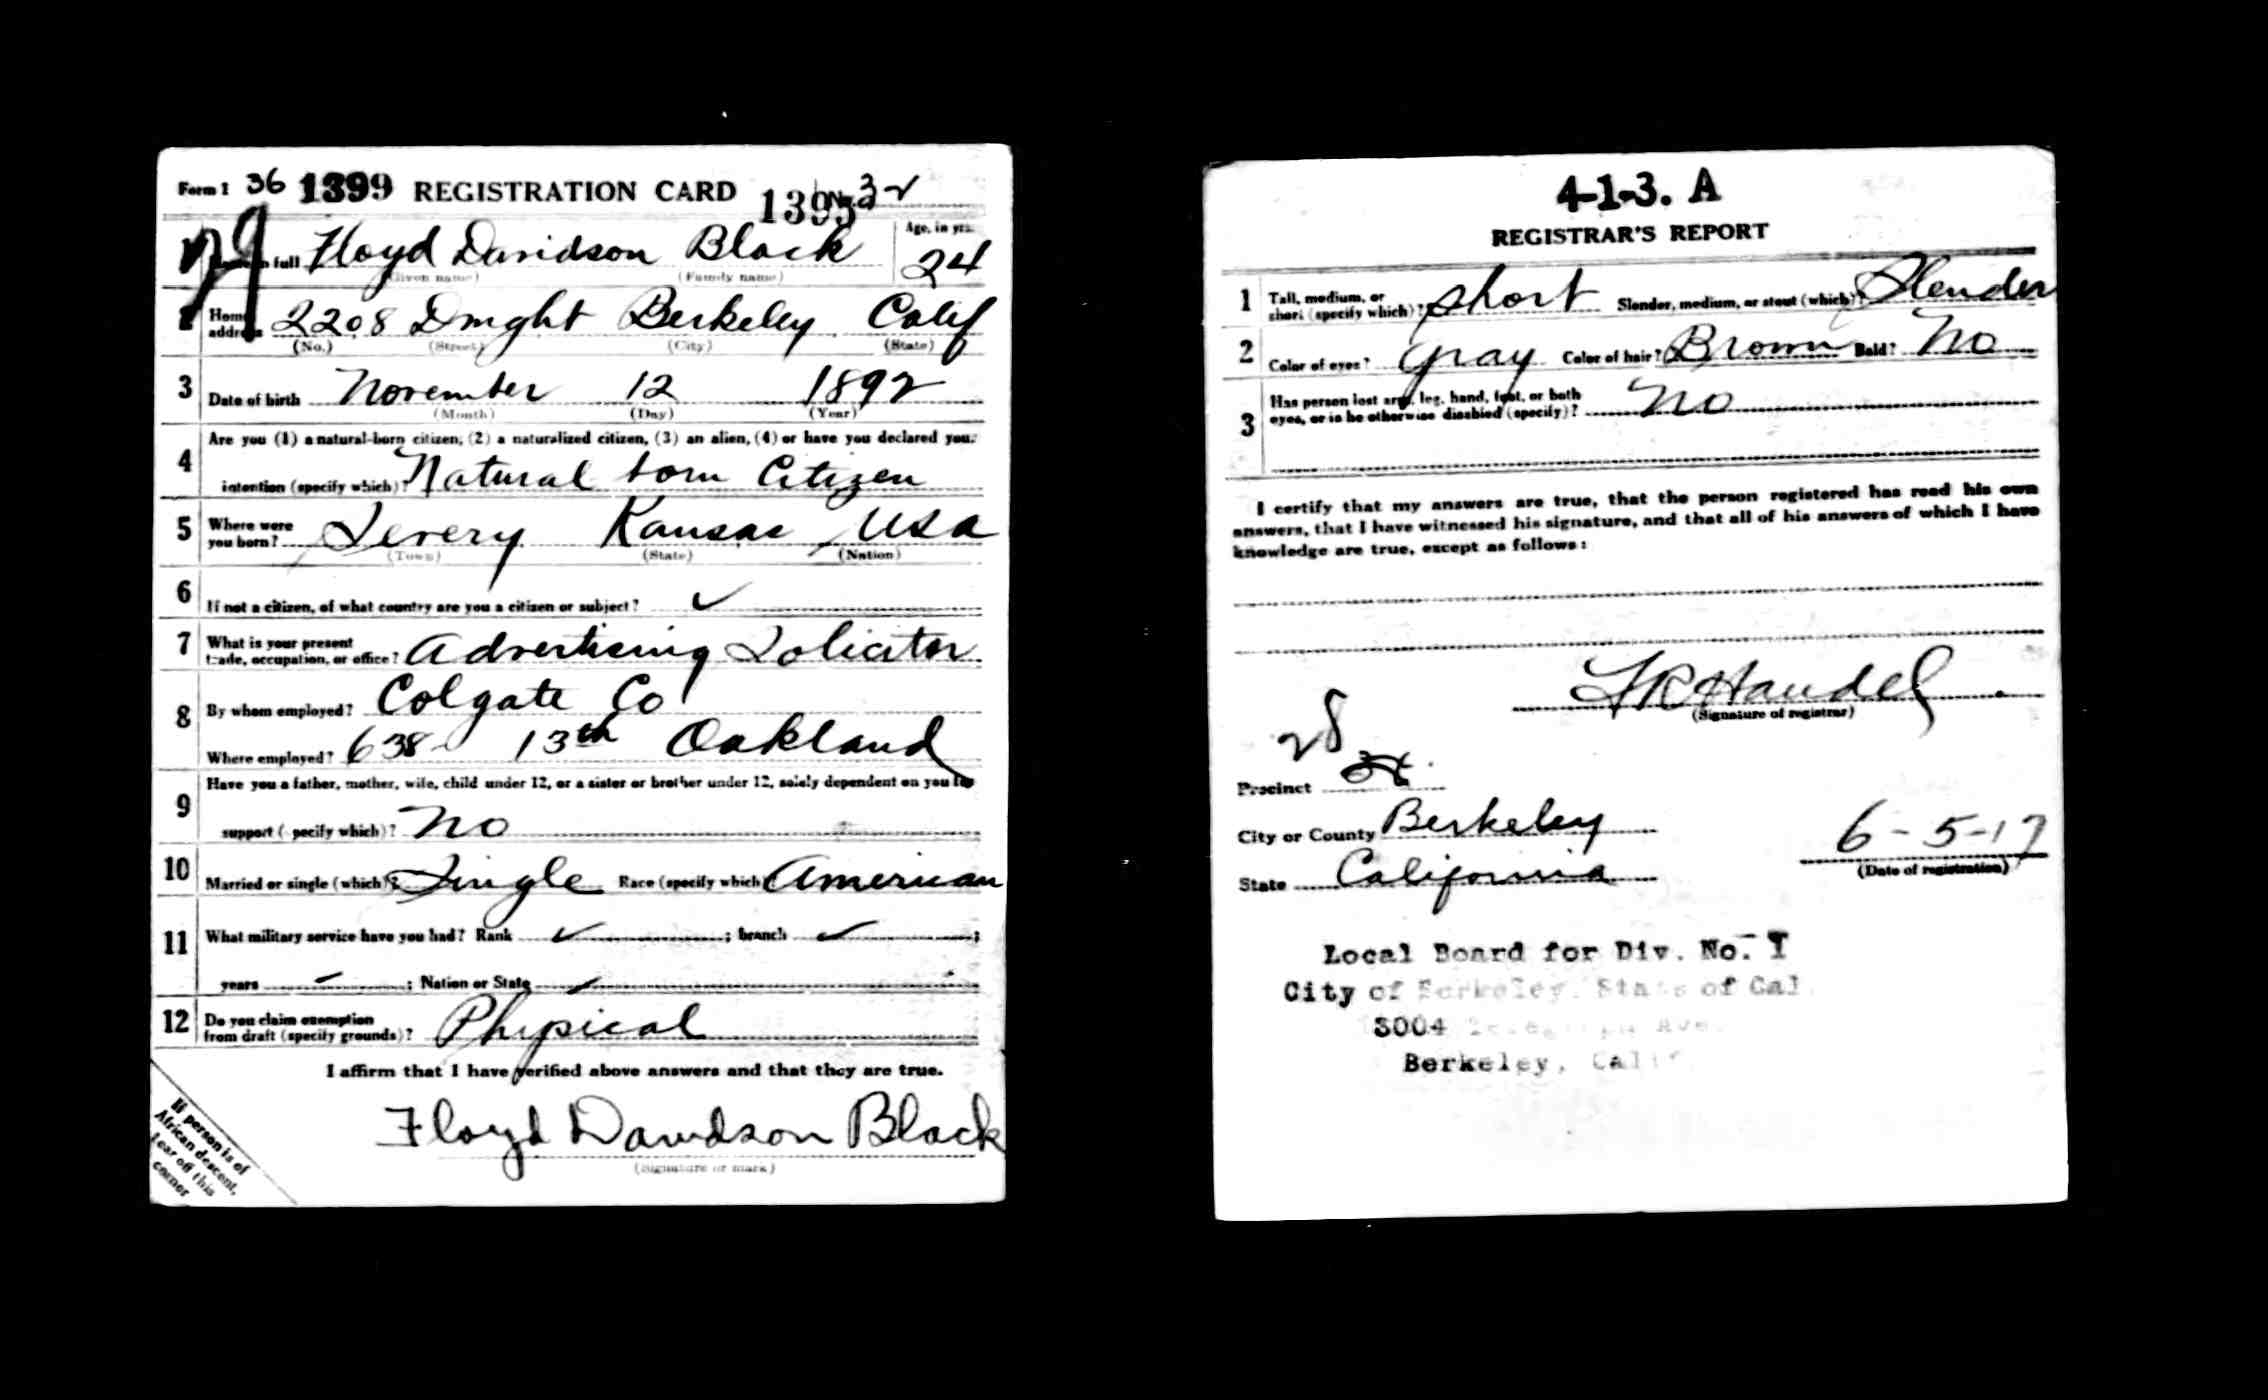 Form 1 36 1399 REGISTRATION CARD 1395 No. 32
1 full Floyd Davidson Black Age, in yrs. 24
(Given name) (Family name)
2 Home address 2208 Dwight Berkeley Calif
(No.) (Street) (City) (State)
3 Date of birth November 12 1892
(Month) (Day) (Year)
4 Are you (1) a natural-born citizen, (2) a naturalized citizen, (3) an alien, (4) or have you declared your
intention (specify which)? Natural born Citizen
5 Where were you born? Severy Kansas USA
(Town) (State) (Nation)
6 If not a citizen, of what country are you a citizen or subject? ✓
7 What is your present
trade, occupation, or office? Advertising Solicitor
8 By whom employed? Colgate Co
Where employed? 638 13th Oakland
9 Have you a father, mother, wife, child under 12, or a sister or brother under 12, solely dependent on you for
support (specify which)? No
10 Married or single (which)? Single Race (specify which)? American
11 What military service have you had? Rank ✓ ; branch ✓ ;
years ; Nation or State
12 Do you claim exemption
from draft (specify grounds)? Physical
I affirm that I have verified above answers and that they are true.
Floyd Davidson Black
(Signature or mark)
If person is of
African descent,
tear off this
corner
4-1-3. A
REGISTRAR'S REPORT
1 Tall, medium, or
short (specify which)? Short Slender, medium, or stout (which)? Slender
2 Color of eyes? Gray Color of hair? Brown Bald? No
3 Has person lost arm, leg, hand, foot, or both
eyes, or is he otherwise disabled (specify)? No
I certify that my answers are true, that the person registered has read his own
answers, that I have witnessed his signature, and that all of his answers of which I have
knowledge are true, except as follows:
Handel
(Signature of registrar)
28
Precinct
City or County Berkeley 6-5-17
State California (Date of registration)
Local Board for Div. No. 1
City of Berkeley, State of Cal.
3004 Ave.
Berkeley, Calif